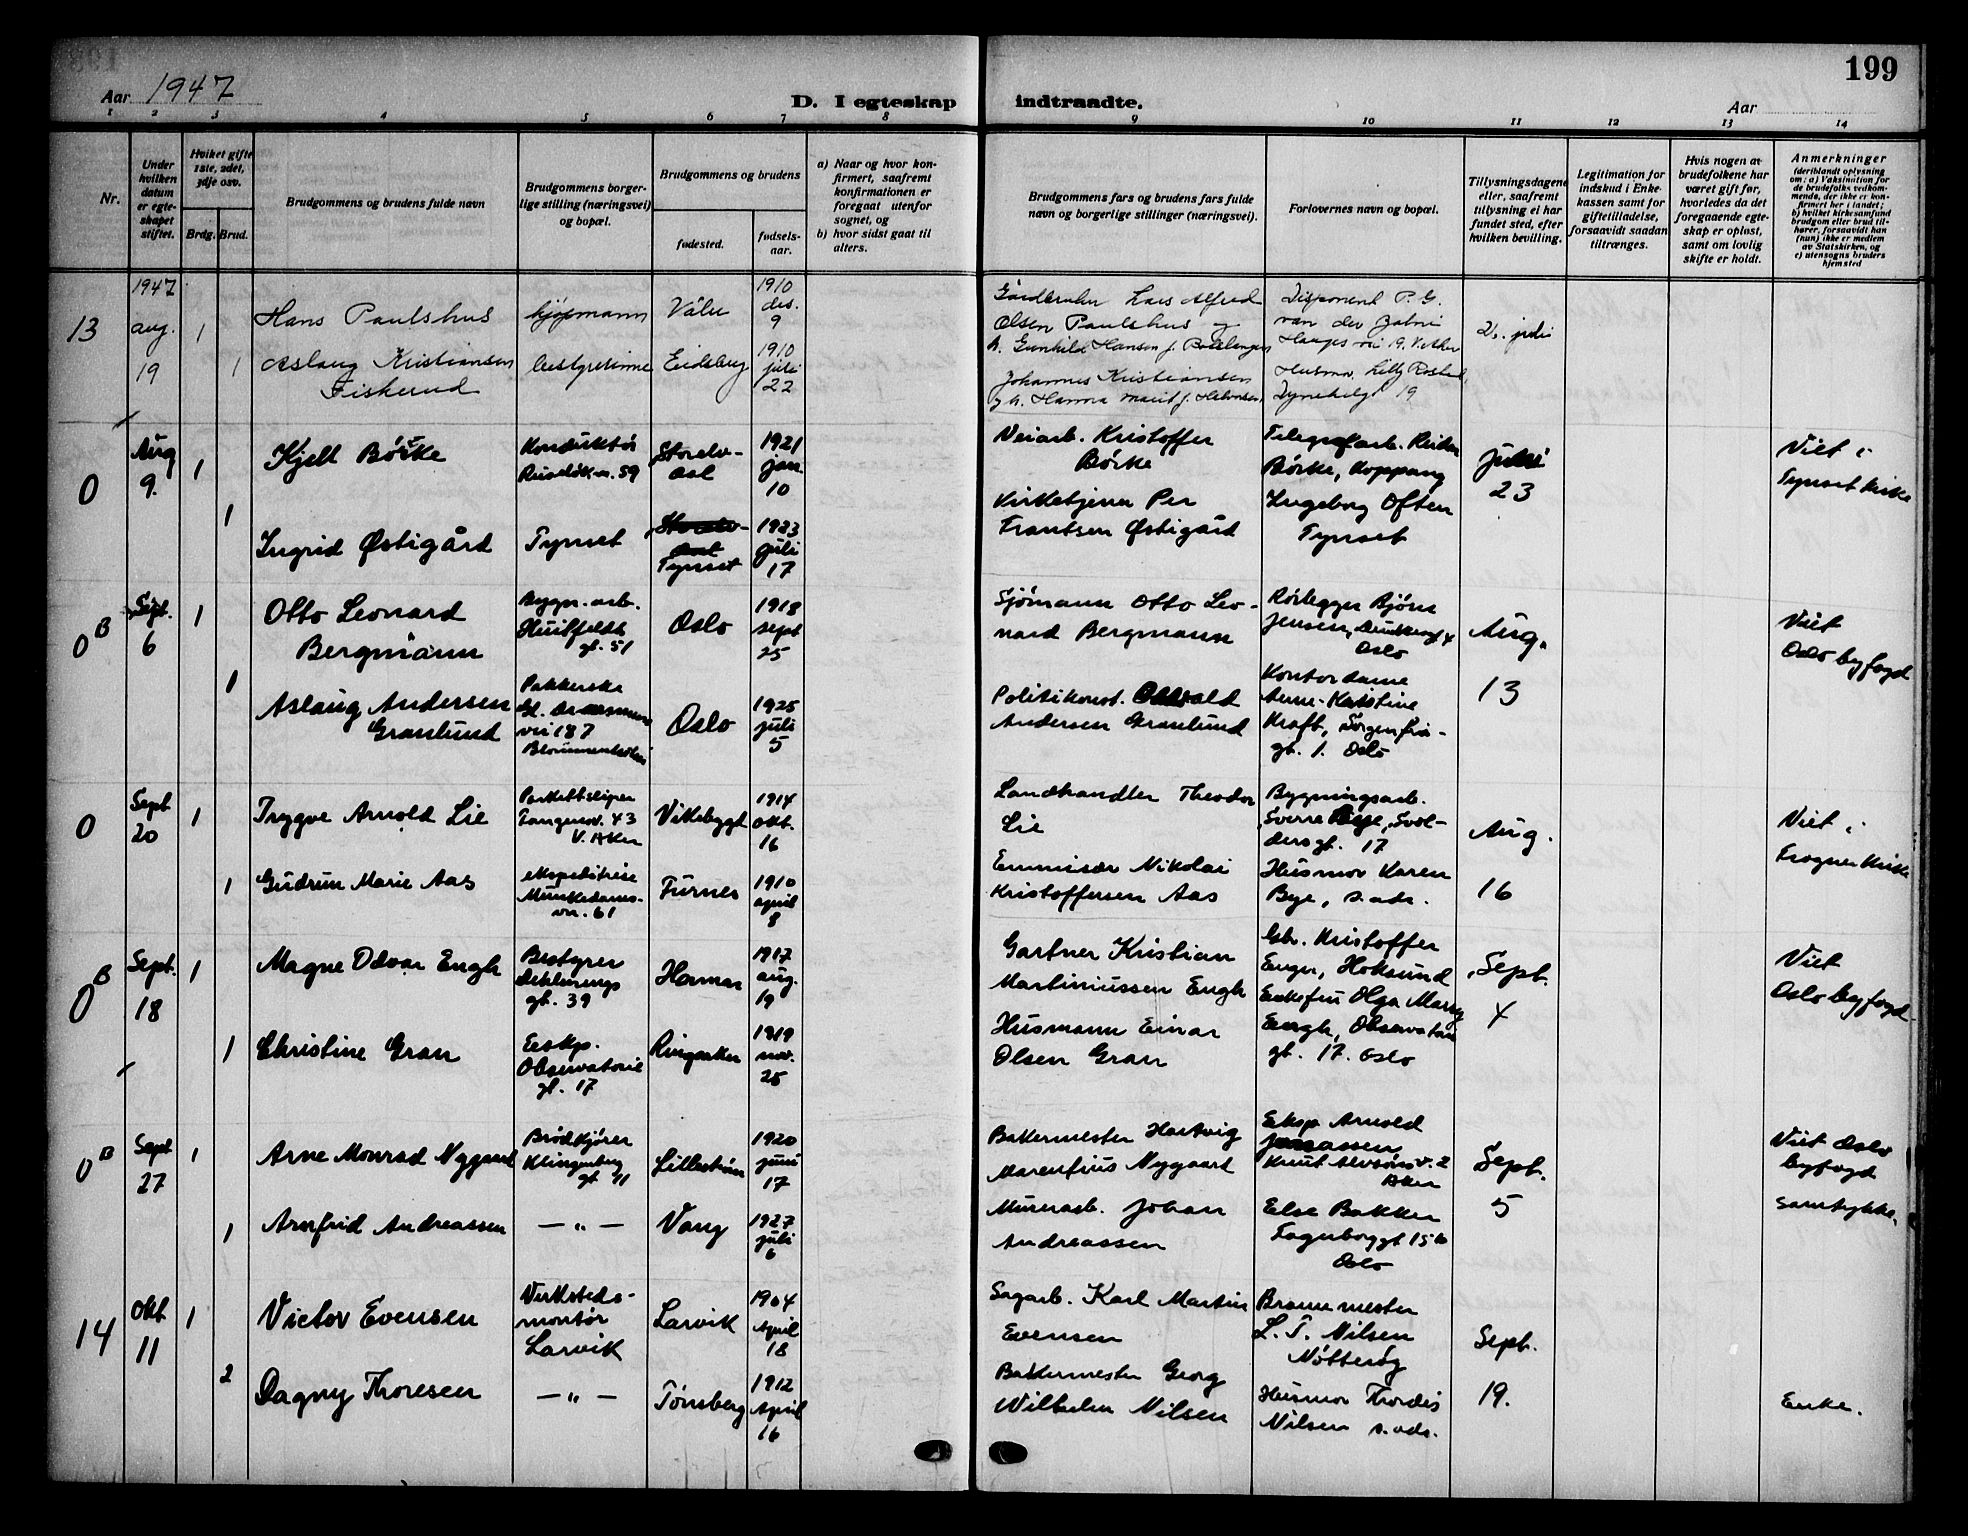 199
Aar 1947
D. I egteskap
indtraadte.
Aar
1 2 3 4 5 6 7 8 9 10 11 12 13 14
Nr.
Under
hvilken
datum
er egte-
skapet
stiftet.
Hvilket gifte
1ste, 2det,
3dje osv.
Brdg. Brud.
Brudgommens og brudens fulde navn
Brudgommens borger-
lige stilling (næringsvei)
og bopæl.
Brudgommens og brudens
fødested.
fødsels-
aar.
a) Naar og hvor kon-
firmert, saafremt
konfirmationen er
foregaat utenfor
sognet, og
b) hvor sidst gaat til
alters.
Brudgommens fars og brudens fars fulde
navn og borgerlige stillinger (næringsvei).
Forlovernes navn og bopæl.
Tillysningsdagene
eller, saafremt
tillysning ei har
fundet sted, efter
hvilken bevilling.
Legitimation for
indskud i Enke-
kassen samt for
giftetilladelse,
forsaavidt saadan
tiltrænges.
Hvis nogen av
brudefolkene har
været gift før,
hvorledes da det
foregaaende egte-
skap er opløst,
samt om lovlig
skifte er holdt.
Anmerkninger
(deriblandt oplysning
om: a) Vaksination for
de brudefolks vedkom-
mende, der ikke er kon-
firmert her i landet;
b) hvilket kirkesamfund
brudgom eller brud til-
hører, forsaavidt han
(hun) ikke er medlem
av Statskirken, og
c) utensogns bruders
hjemsted
13
1947
aug.
19
1
Hans Paulshus
kjøpmann
Våler
1910
des.
9
Gårdbruker Lars Alfred
Olsen Paulshus og
h. Gunhild Hansen f.
Disponent P. G.
van der
19
juli
1
Aslaug Kristiansen
Fiskerud
bestyrerinne
Eidsberg
1910
juli
22
Johannes Kristiansen
og h. Hanna Marit f. Halvorsen
Husmor Lilly
19
0
Aug
9.
1
Kjell Børke
Konduktør
Ruseløkv. 59
Storelv-
dal
1921
jan
10
Veiarb. Kristoffer
Børke
Telegrafarb. Reidar
Børke, Koppang
juli
23
Viet i
Tynset kirke
1
Ingrid Østigård
Tynset
Storelv-
dal
Tynset
1923
juli
17
Kirketjener Per
Frantsen Østigård
Ingeborg Often
Tynset
0 B
Sept.
6
1
Otto Leonard
Bergmann
Bygn.arb.
Huitfeldt
gt. 51
Oslo
1918
sept
25
Sjømann Otto Leo-
nard Bergmann
Rørlegger Bjørn
Jensen,
Oslo
Aug.
13
Viet
Oslo byfogd
1
Aslaug Andersen
Granlund
Pakkerske
Gl. Drammens
vei 187
Oslo
1925
juli
5
Politikonst. Osvald
Andersen Granlund
Kontordame
Anne-Katrine
Kraft, Sorgenfri-
gt. 1. Oslo
0
Sept
20
1
Trygve Arnold Lie
Parkettsliper
Tangenv. 43
V. Aker
Vikebygd
1914
okt.
16
Landhandler Theodor
Lie
Bygningsarb.
Sverre Bye, Svol-
dersgt. 17
Aug.
16
Viet i
Frogner kirke
1
Gudrun Marie Aas
ekspeditrise
Munkedams-
vn. 61
Furnes
1910
april
8
Emmisær Nikolai
Kristoffersen Aas
Husmor Karen
Bye, s. adr.
0 B
Sept.
18
1
Magne Odvar Engh
Bestyrer
Dehlirings
gt. 39
Hamar
1917
aug.
19
Gartner Kristian
Martiniussen Engh
Gbr. Kristoffer
Enger, Hoksund
Sept.
4
Viet
Oslo byfogd
1
Christine Gran
Eksp.
Observatorie
gt. 17
Ringsaker
1919
nov.
25
Husmann Einar
Olsen Gran
Enkefru Olga Mary
Engh, Observatori
gt. 17. Oslo
0 B
Sept
27
1
Arne Monrad Nygaard
Brødkjører
Klingenberg
gt
Lillestrøm
1920
juni
17
Bakermester Hartvig
Marenfius Nygaard
Eksp Arnold
Jonassen
Knut Alvsøns v. 2
Aker
Sept.
5
Viet Oslo
byfogd
Samtykke.
1
Arnfrid Andreassen
— „ —
Vang
1927
juli
6
Murerarb. Johan
Andreassen
Else Bakker
Fagerborggt 15b
Oslo
14
Okt
11
1
Victor Evensen
Verksteds-
montør
Larvik
Larvik
1904
April
18
Sagarb. Karl Martin
Evensen
Brannmester
L. T. Nilsen
Nøtterøy
Sept.
19.
2
Dagny Thoresen
— „ —
Tønsberg
1912
April
16
Bakermester Georg
Wilhelm Nilsen
Husmor Thordis
Nilsen s. adr.
Enke.